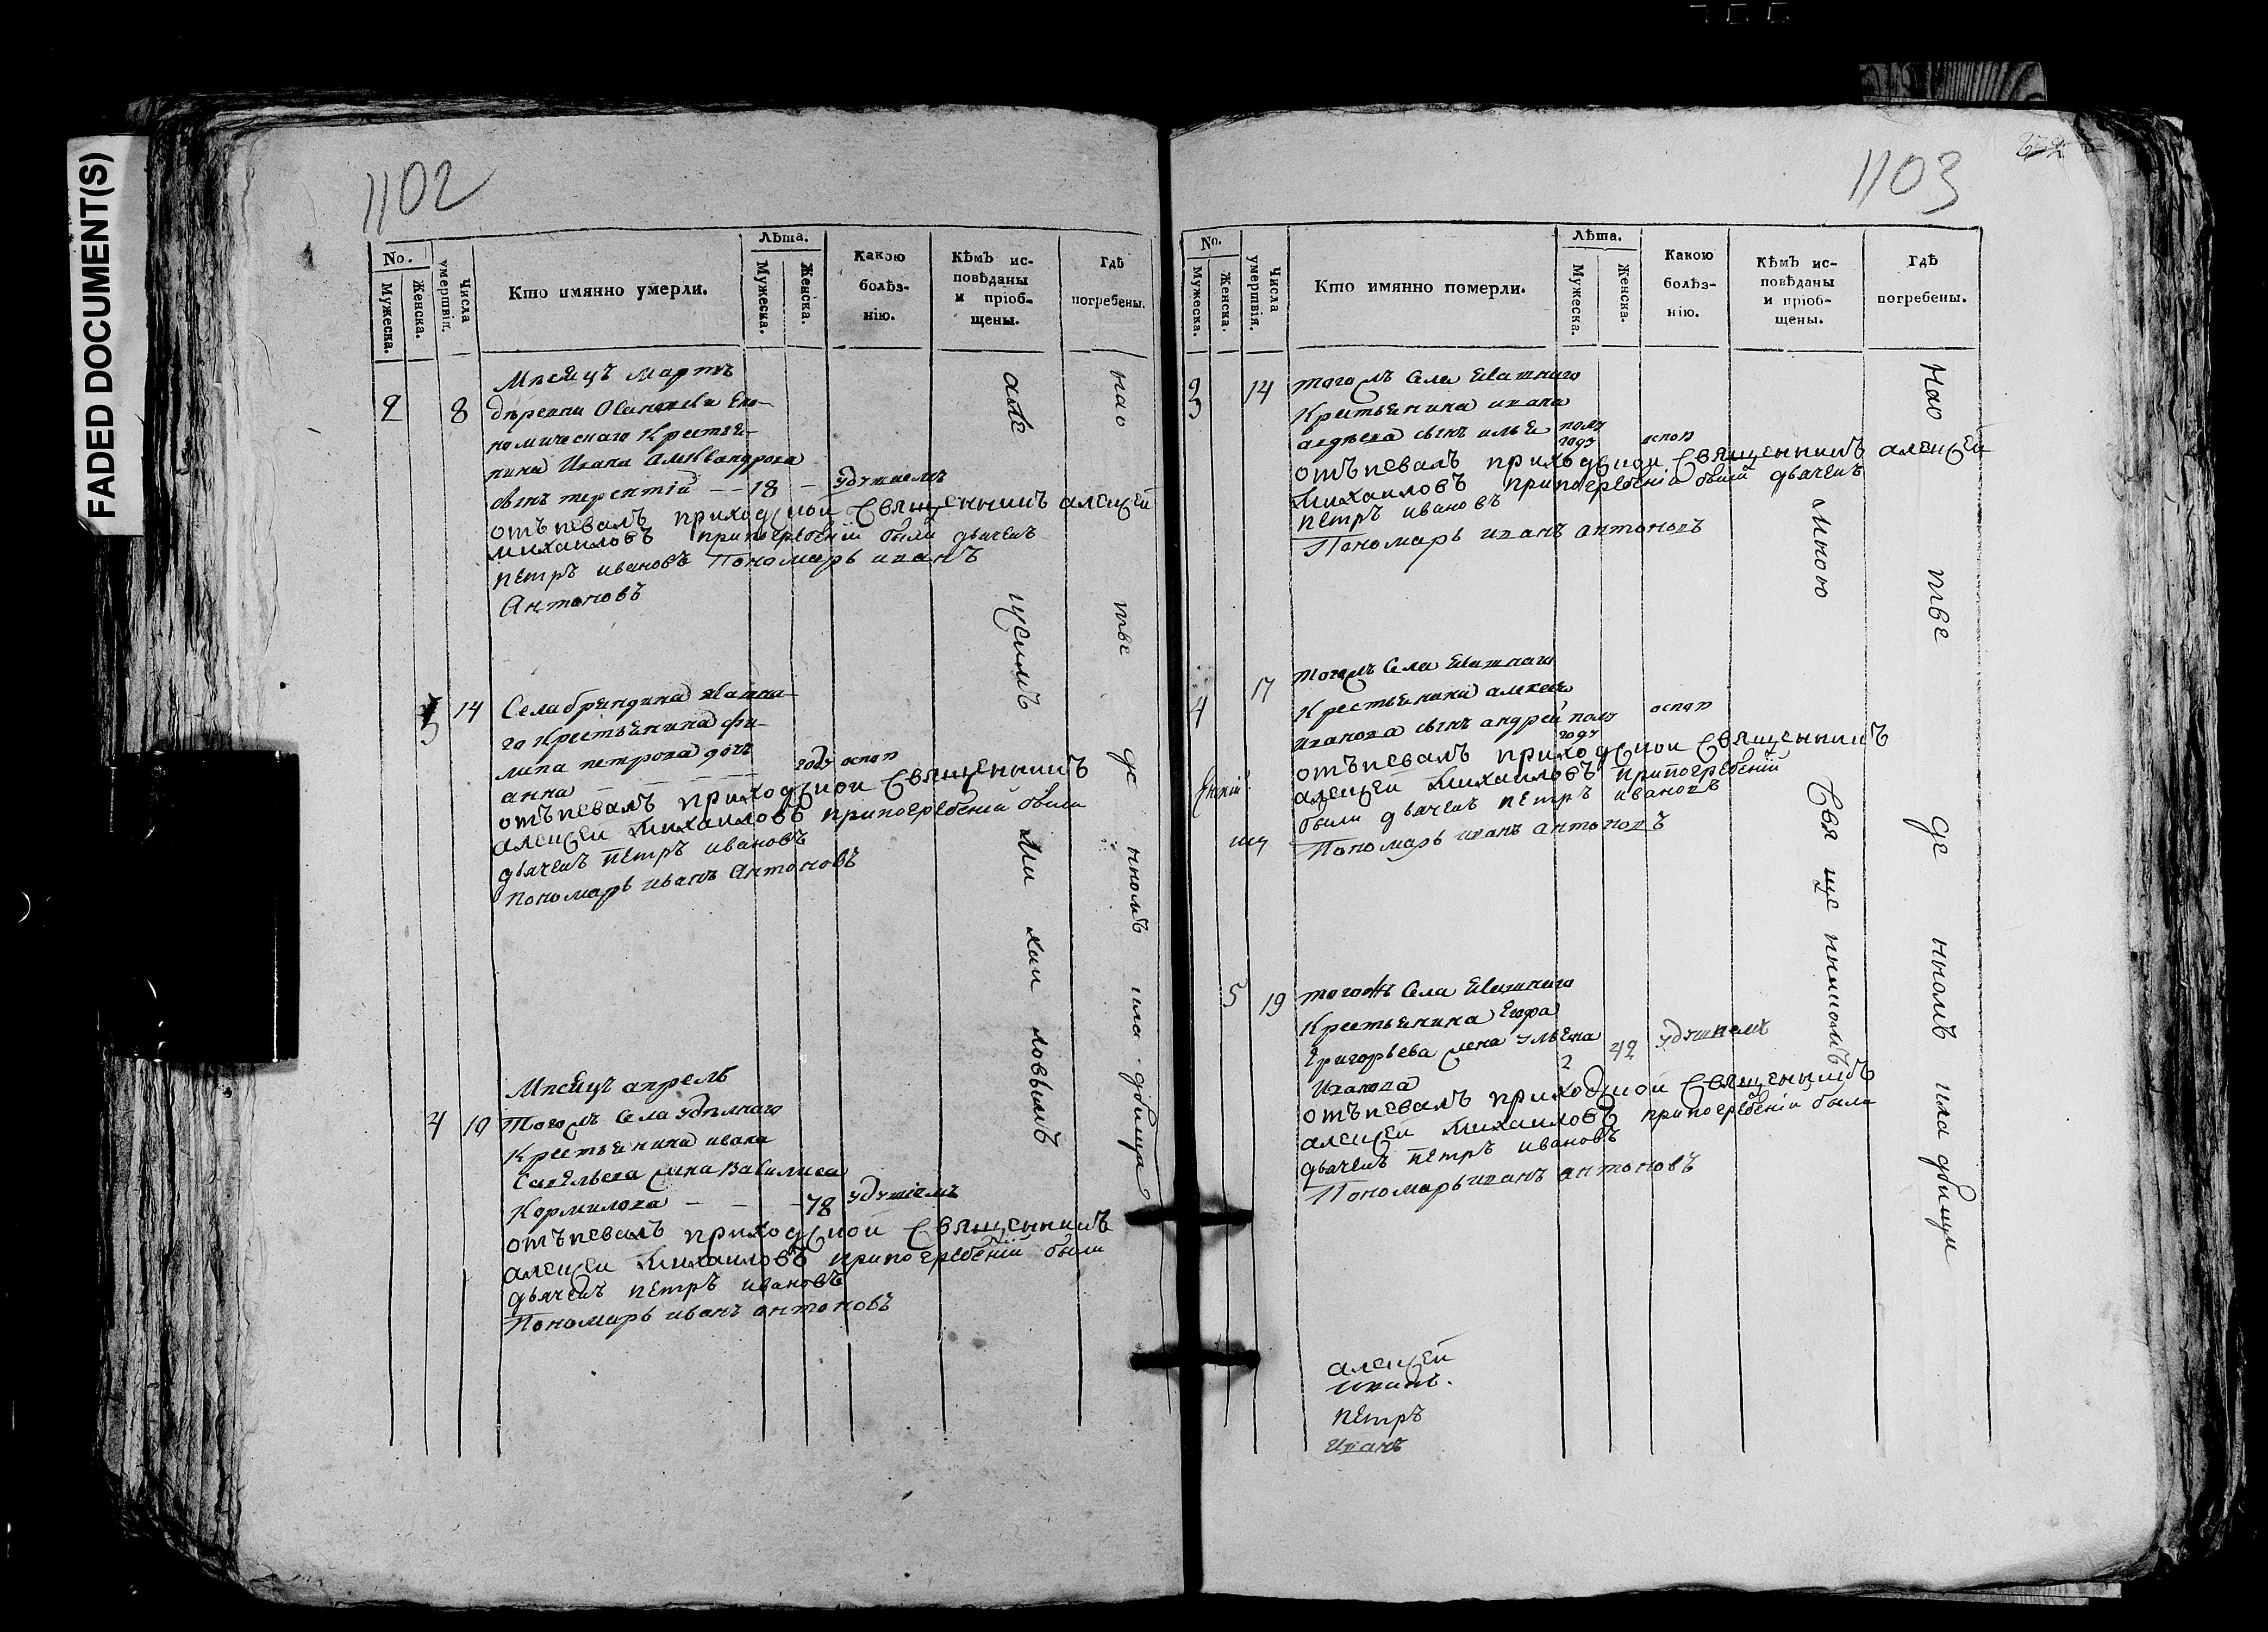 FADED DOCUMENT(S)
1102
No.
Мужеска.
Женска.
Числа умершвія.
Кто имянно умерли.
Лѣта.
Мужеска.
Женска.
Какою
болѣз-
нію.
Кѣмъ ис-
повѣданы
и пріоб-
щены.
Гдѣ
погребены.
Месяцъ мартъ
2 8 деревни Еко-
номическаго Крестья-
нина Ивана Александрова
сынъ терентій 18 удушіемъ
отъпевалъ приходской Священникъ алексей
михаиловъ припогребеніи были дьячекъ
петръ ивановъ Пономарь иванъ
Антоновъ
3 14 Села бриндина
го Крестьянина фи-
липа петрова дочь
анна году оспой
отъпевалъ приходской Священникъ
алексеи михаиловъ припогребеніи были
дьячекъ петръ ивановъ
пономарь иванъ Антоновъ
Месяцъ апрель
4 19 Тогожъ Села удельнаго
Крестьянина ивана
Савельева жена Василиса
Кормилова 78 удушіемъ
отъпевалъ приходской Священникъ
алексеи михаиловъ припогребеніи были
дьячекъ петръ ивановъ
Пономарь иванъ антоновъ
але ксеимъ ми хаи ловымъ
нао тве де нномъ кла дбища
1103
No.
Мужеска.
Женска.
Числа умершвія.
Кто имянно померли.
Лѣта.
Мужеска.
Женска.
Какою
болѣз-
нію.
Кѣмъ ис-
повѣданы
и пріоб-
щены.
Гдѣ
погребены.
3 14 тогожъ Села
Крестьянина ивана
сынъ илья полу
году оспой
отъпевалъ приходской Священникъ алексей
михаиловъ припогребеніи были дьячекъ
петръ ивановъ
Пономарь иванъ антоновъ
4 17 тогожъ Села
Крестьянина алексея
Иванова сынъ андрей полу оспой
году
отъпевалъ приходской Священникъ
алексей михаиловъ припогребеніи
были дьячекъ петръ ивановъ
Пономарь иванъ антоновъ
5 19 тогожъ Села
Крестьянина
Григорьева жена ульяна 42 удушіемъ
Иванова
отъпевалъ приходской Священникъ
алексей михаиловъ припогребеніи были
дьячекъ петръ ивановъ
Пономарь иванъ антоновъ
мною Свя ще нникомъ
нао тве де нномъ кла дбищи
алексей
петръ
Иванъ